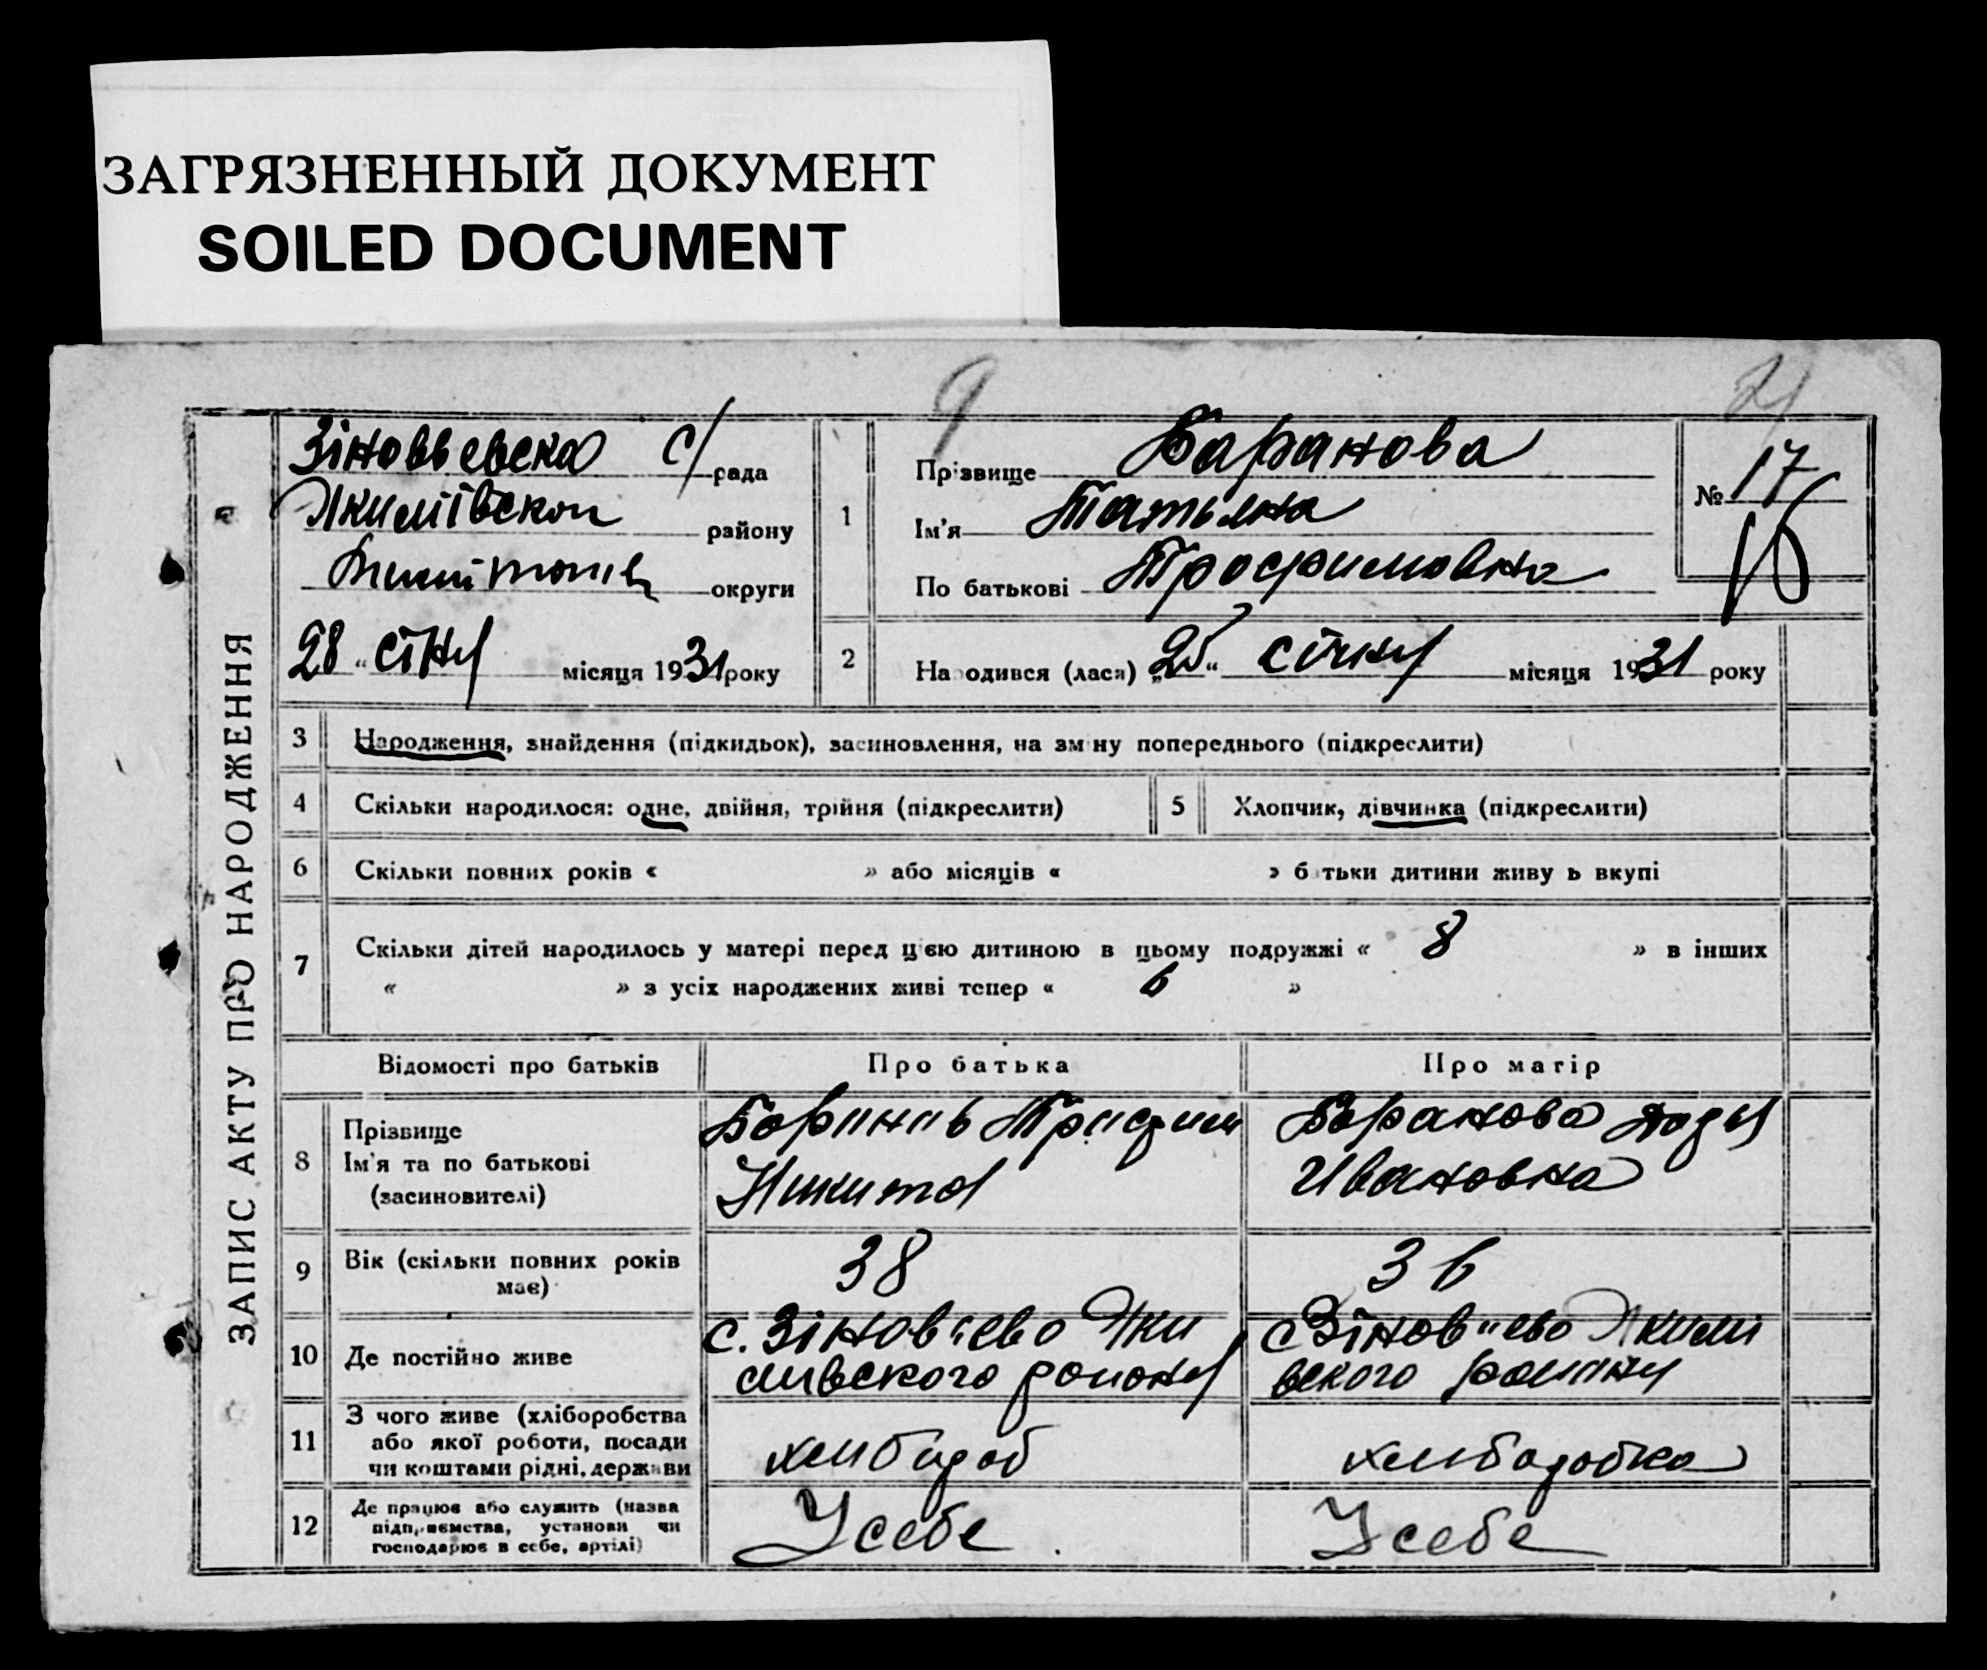 ЗАГРЯЗНЕННЫЙ ДОКУМЕНТ
SOILED DOCUMENT
9
ЗАПИС АКТУ ПРО НАРОДЖЕННЯ
Зіновьевска с/рада
Якиміївскои району
округи
28 " січня місяця 1931 року
1
Прізвище Баранова
Ім'я Татьяна
По батькові Трофимовна
№ 17
16
2 Народився (лася) „25" січня місяця 1931 року
3 Народження, знайдення (підкидьок), засиновлення, на зміну попереднього (підкреслити)
4 Скільки народилося: одне, двійня, трійня (підкреслити)
5 Хлопчик, дівчинка (підкреслити)
6 Скільки повних років « » або місяців « » батьки дитини живуть вкупі
7 Скільки дітей народилось у матері перед цією дитиною в цьому подружжі « 8 » в інших
« » з усіх народжених живі тепер « 6 »
Відомості про батьків Про батька Про матір
8 Прізвище
Ім'я та по батькові
(засиновителі)
Баранов Трофим
Никита
Баранова
Ивановна
9 Вік (скільки повних років
має)
38
36
10 Де постійно живе
с. Зіновʼєво Яки
мивского району
с Зіновиево Якимі
вского району
11 З чого живе (хліборобства
або якої роботи, посади
чи коштами рідні, держави
хлибороб
хлиборобка
12 Де працює або служить (назва
підприємства, установи чи
господарює в себе, артілі)
У себе
У себе